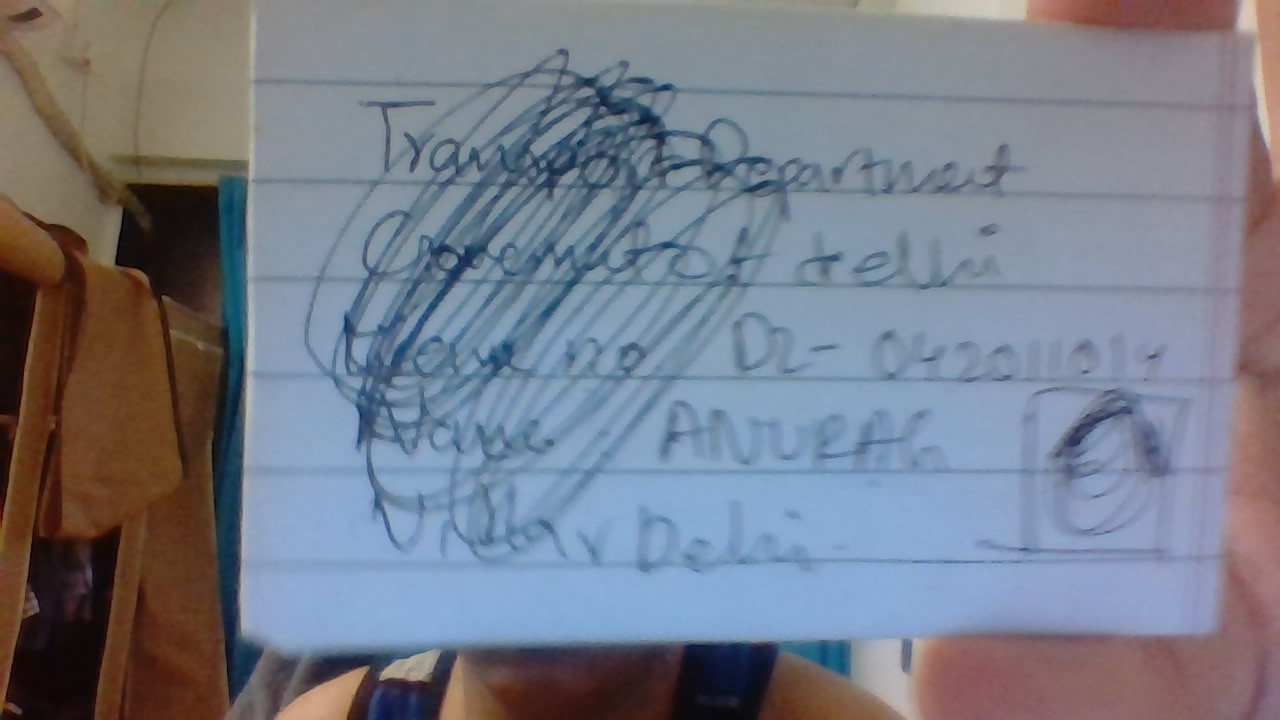 Transport Department
Goverment of delhi
no DL- 042011014
Name : ANURAG
Delhi